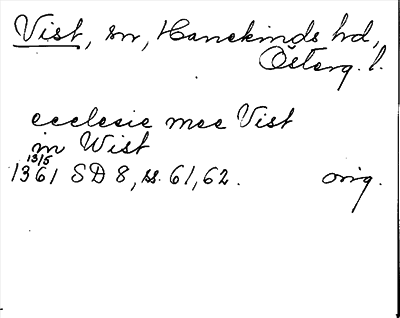 Vist, sn, Hanekinds hd,
Österg. l.
ecclesie mee Vist
in Wist
13/5
1361 SD 8, ss. 61, 62. orig.